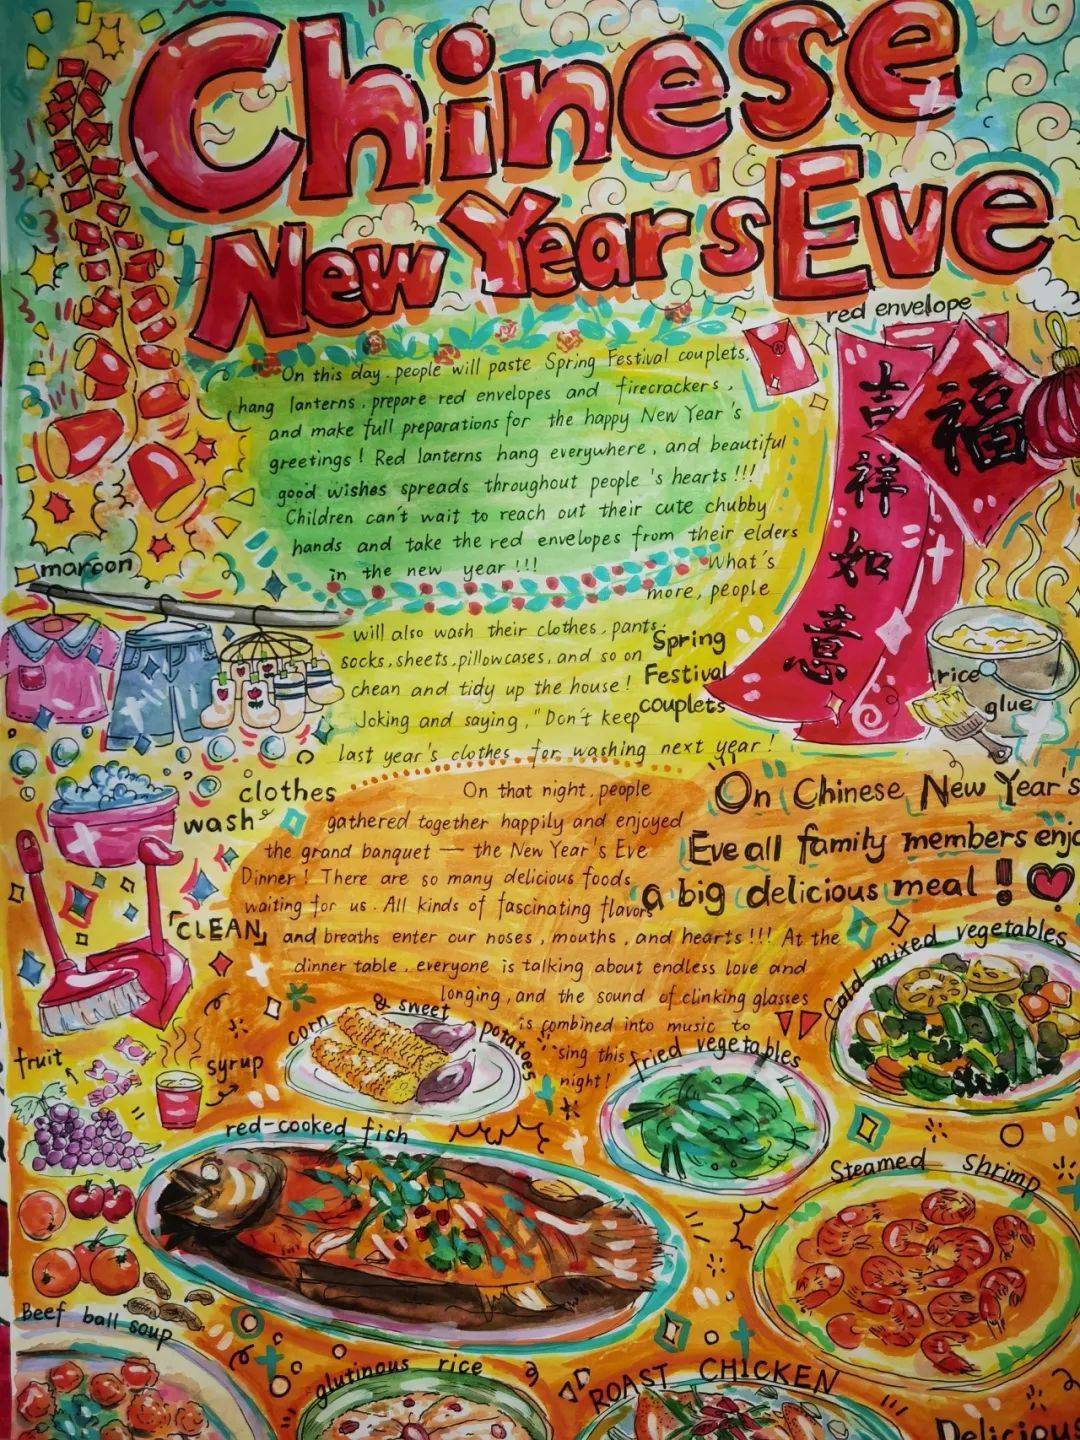 Chinese
New Year's Eve
red envelope
On this day, people will paste Spring Festival couplets,
hang lanterns, prepare red envelopes and firecrackers,
and make full preparations for the happy New Year's
greetings! Red lanterns hang everywhere, and beautiful
good wishes spreads throughout people's hearts!!!
Children can't wait to reach out their cute chubby
hands and take the red envelopes from their elders
in the new year!!! What's
more, people
will also wash their clothes, pants,
socks, sheets, pillowcases, and so on
chean and tidy up the house!
Joking and saying, "Don't keep
last year's clothes for washing next year!
福
吉
祥
如
意
maroon
Spring
Festival
couplets
rice
glue
clothes
wash
「CLEAN」
On that night, people
gathered together happily and enjoyed
the grand banquet — the New Year's Eve
Dinner! There are so many delicious foods
waiting for us. All kinds of fascinating flavors
and breaths enter our noses, mouths, and hearts!!! At the
dinner table, everyone is talking about endless love and
longing, and the sound of clinking glasses
is combined into music to
sing this
night!
On Chinese New Year's
Eve all family members enjo
a big delicious meal!
Cold mixed vegetables
corn & sweet potatoes
fried vegetables
fruit
syrup
red-cooked fish
Steamed Shrimp
Beef ball soup
glutinous rice
ROAST CHICKEN
Delicious